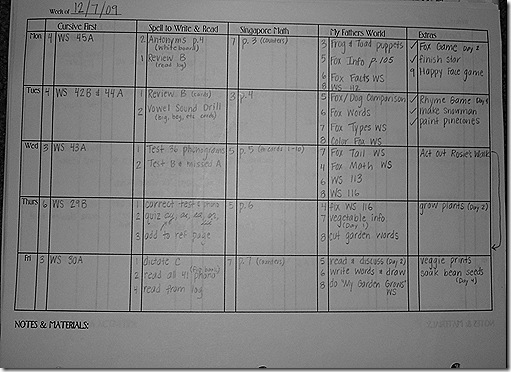 Week of 12/7/09
Cursive First Spell to Write & Read Singapore Math My Fathers World Extras
Mon 4 WS 45A
2 Antonyms p.4
(whiteboard)
1 Review B
(read log)
7 p. 3 (counters)
3 Frog & Toad puppets
5 Fox Info p.105
6 Fox Facts WS
8 WS 112
✓ Fox Game Day 2
✓ finish star
9 Happy face game
Tues 4 WS 42B & 44A
1 Review B (cards)
2 Vowel Sound Drill
(big, boy, etc cards)
3 p. 4
5 Fox/Dog Comparison
6 Fox Words
7 Fox Types WS
8 Color Fox WS
✓ Rhyme Game (Day
✓ make snowman
✓ paint pinecones
Wed 3 WS 43A
1 Test 36 phonograms
2 Test B & missed A
5 p. 5 (
7 Fox Tail WS
4 Fox Math WS
6 WS 113
8 WS 116
Act out Rosie's Walk
Thurs 6 WS 29B
1 correct test
2 quiz
3 add to ref page
5 p. 6
4 fix WS 116
7 vegetable info
(Day 1)
8 cut garden words
grow plants (Day 2)
Fri 3 WS 30A
1 dictate C
2 read all 41
4 read from log
7 p. 7 (counters)
5 read & discuss (Day 2)
6 write words & draw
8 do "My Garden Grows"
WS
veggie prints
soak bean seeds
(Day 4)
NOTES & MATERIALS: